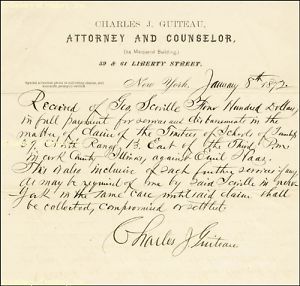 CHARLES J. GUITEAU,
ATTORNEY AND COUNSELOR,
59 & 61 LIBERTY STREET.
New York, January 8th 1872
Received of Geo. Scoville Four Hundred Dollars
in full payment for services and disbursements in the
matter of claim of the Trustees of Schools of
North Range 13, East of the Third
in Cook County Illinois, against
This is also inclusive of such further services if any,
as may be required of me by said Scoville in New
York in the same case until said claim shall
be collected, compromised or settled.
Charles J Guiteau